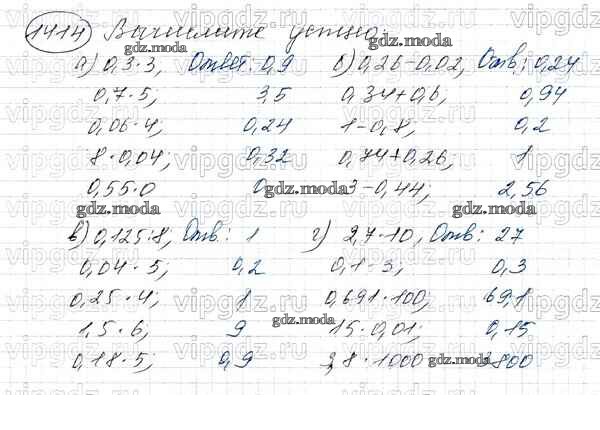 1414 Вычислите устно:
а) 0,3·3, Ответ: 0,9 б) 0,26-0,02, Отв.: 0,24
0,7·5; 3,5 0,34+0,6, 0,94
0,06·4; 0,24 1-0,8; 0,2
8·0,04; 0,32 0,74+0,26; 1
0,55·0 0 3-0,44; 2,56
в) 0,125·8; Отв.: 1 г) 2,7·10, Отв: 27
0,04·5; 0,2 0,1·3; 0,3
0,25·4; 1 0,691·100; 69,1
1,5·6; 9 15·0,01; 0,15
0,18·5; 0,9 3,8·1000 3800
gdz.moda
vipgdz.ru